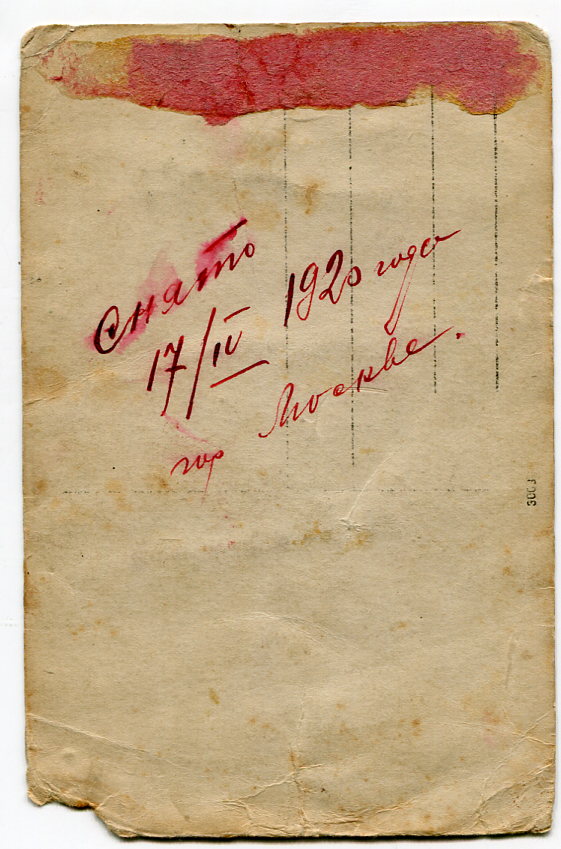 Снято
17/IV 1920 года
гор Москве.
3003